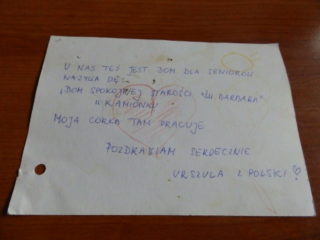 U NAS TEŻ JEST DOM DLA SENIORÓW
NAZYWA SIĘ:
"DOM SPOKOJNEJ STAROŚCI "ŚW. BARBARA"
W KAMIONKU
MOJA CÓRKA TAM PRACUJE
POZDRAWIAM SERDECZNIE
URSZULA Z POLSKI